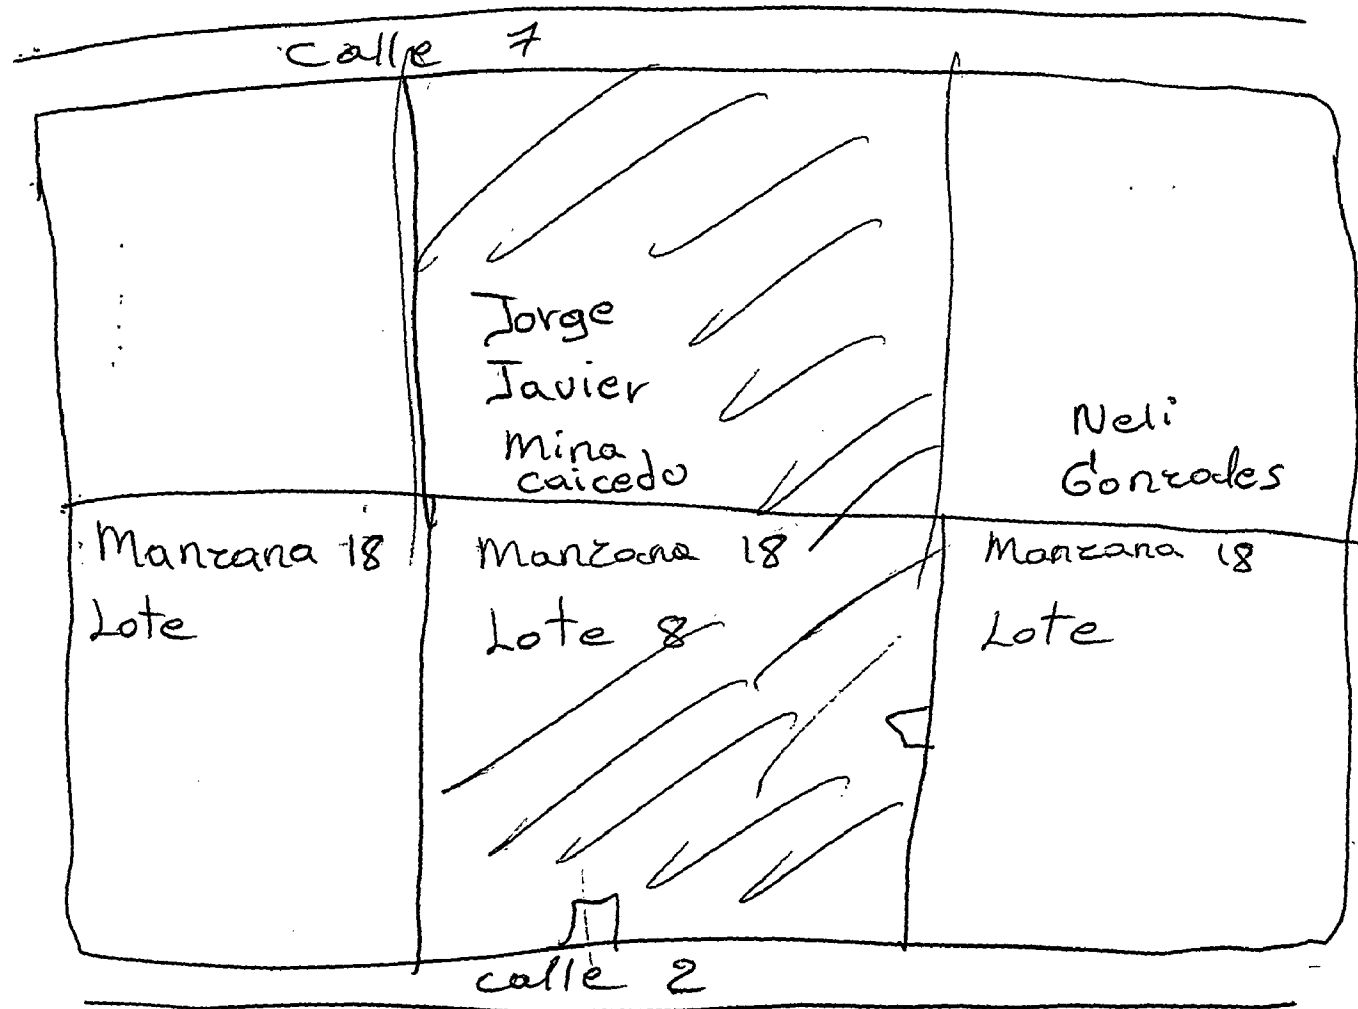 calle 7
Jorge
Javier
Mina
caicedo
Neli
Gonzodes
Manzana 18
Lote
Manzana 18
Lote 8
Manzana 18
Lote
calle 2